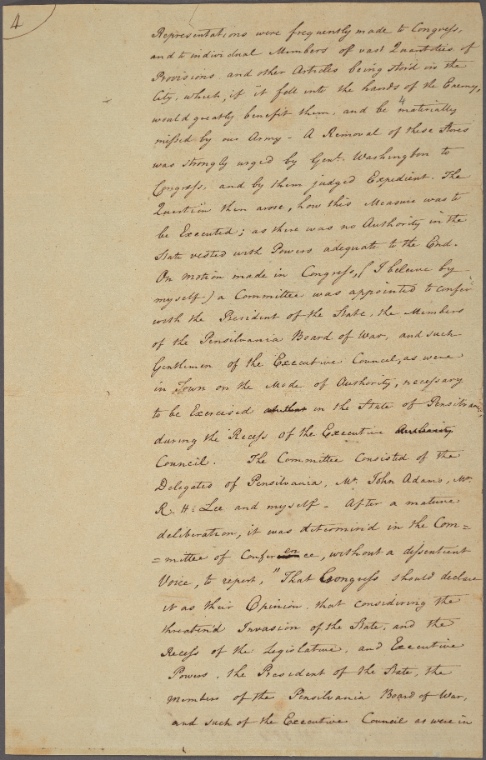 4
Representations were frequently made to Congress,
and to individual Members of vast Quantities of
Provisions and other Articles being stored in the
City, which, if it fell into the hands of the Enemy,
would greatly benefit them, and be materially
missed by our Army – A Removal of these Stores
was strongly urged by Genl. Washington to
Congress, and by them judged Expedient. The
Question then arose, how this Measure was to
be Executed; as there was no Authority in the
State vested with Powers adequate to the End.
On Motion made in Congress, (I beleive by
myself.) a Committee was appointed to confer
with the President of the State, the Members
of the Pensilvania Board of War, and such
Gentlemen of the Executive Council, as were
in Town on the Mode of Authority, necessary
to be Exercised in the State of Pensilvania,
during the Recess of the Executive Authority
Council. The Committee Consisted of the
Delegates of Pensilvania, Mr. John Adams, Mr.
R. H: Lee and myself – After a mature
deliberation, it was determined in the Com=
=mittee of Conference, without a dissentient
Voice, to report, "That Congress should declare
it as their Opinion, that considering the
threatend Invasion of the State, and the
Recess of the Legislative, and Executive
Powers, the President of the State, the
Members of the Pensilvania Board of War,
and such of the Executive Council as were in